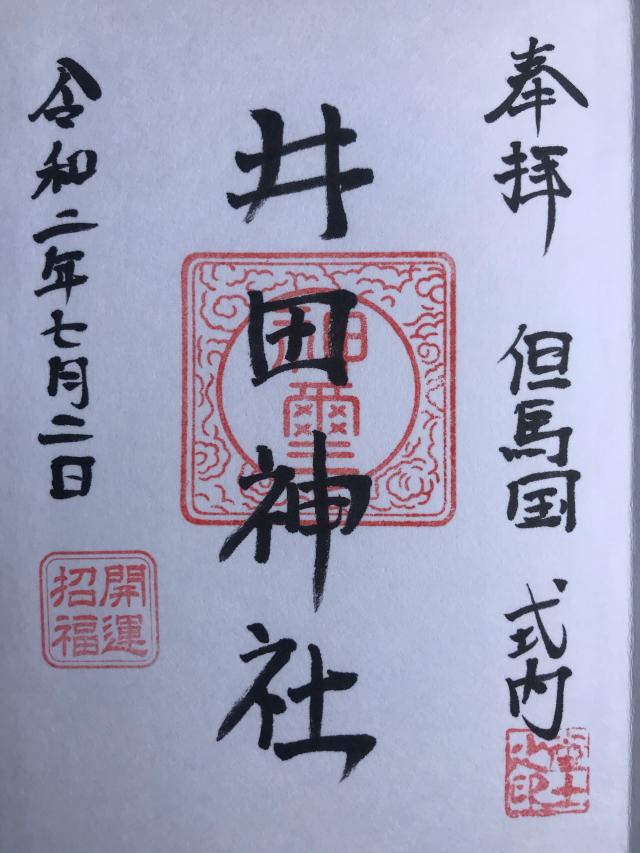 奉拝 但馬国 式内
井田神社
神璽
令和二年七月二日
開運
招福